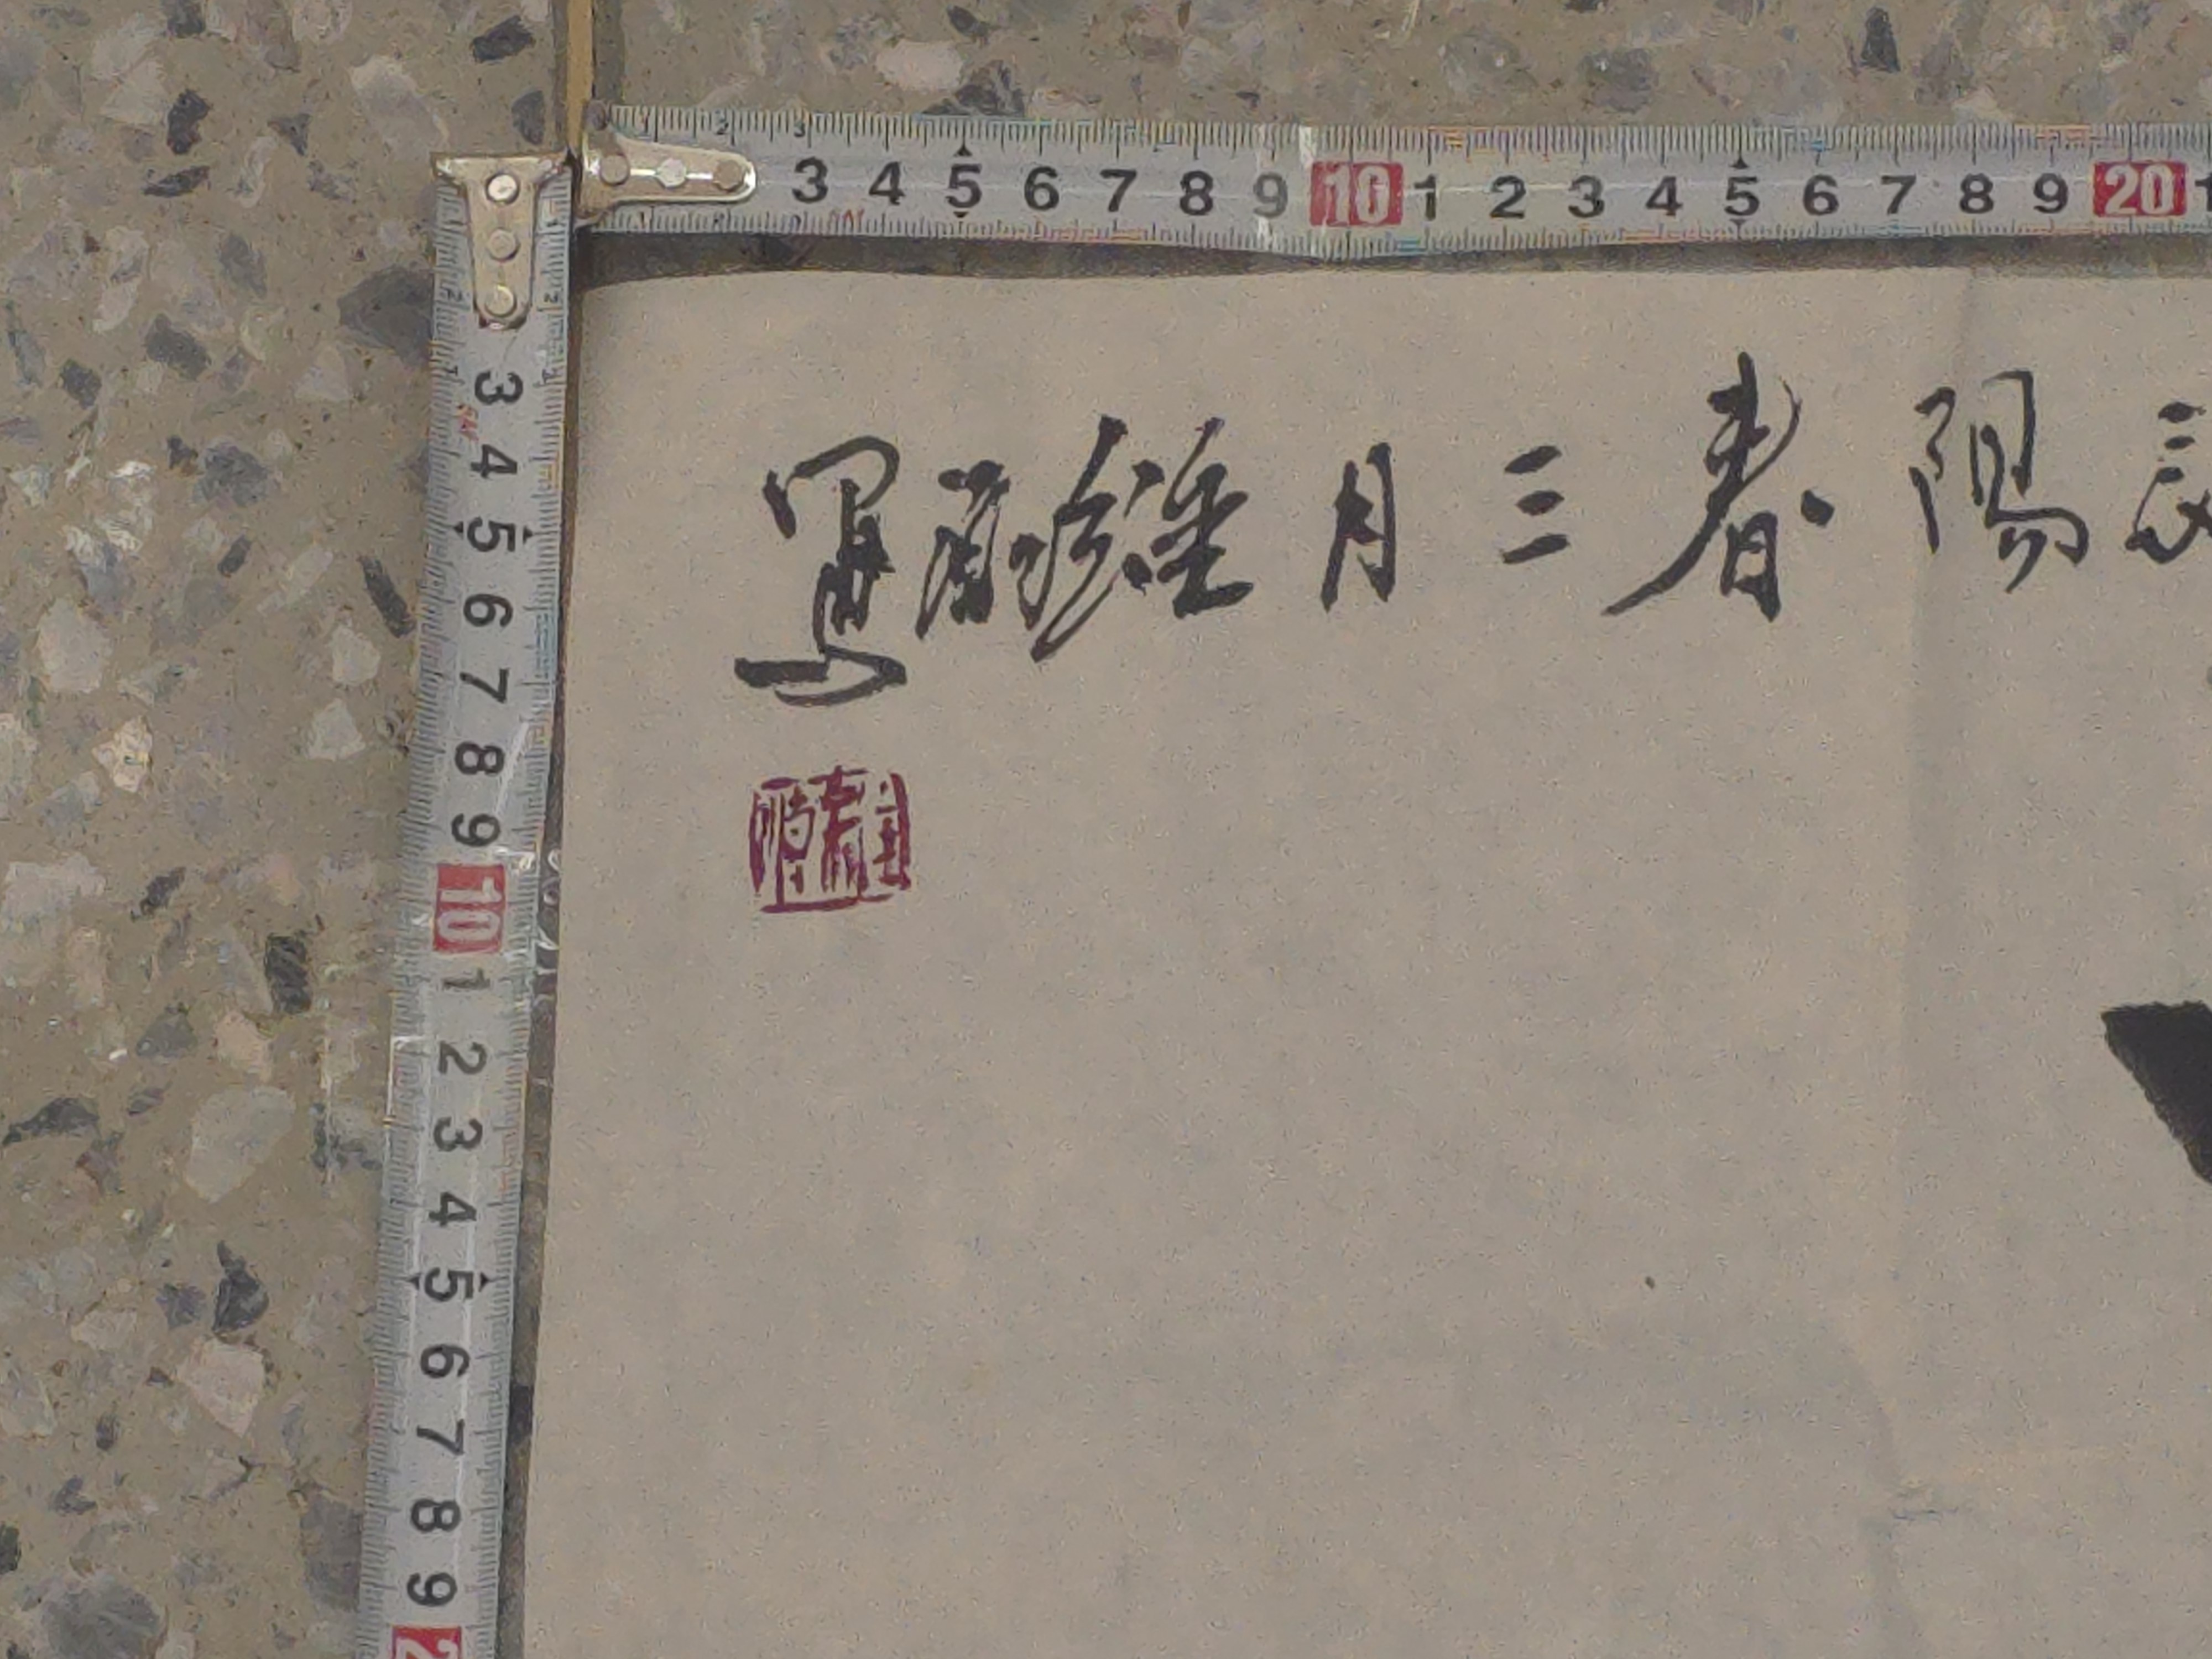 3 4 5 6 7 8 9 10 1 2 3 4 5 6 7 8 9 20
3 4 5 6 7 8 9 10 1 2 3 4 5 6 7 8 9
辰陽春三月寫